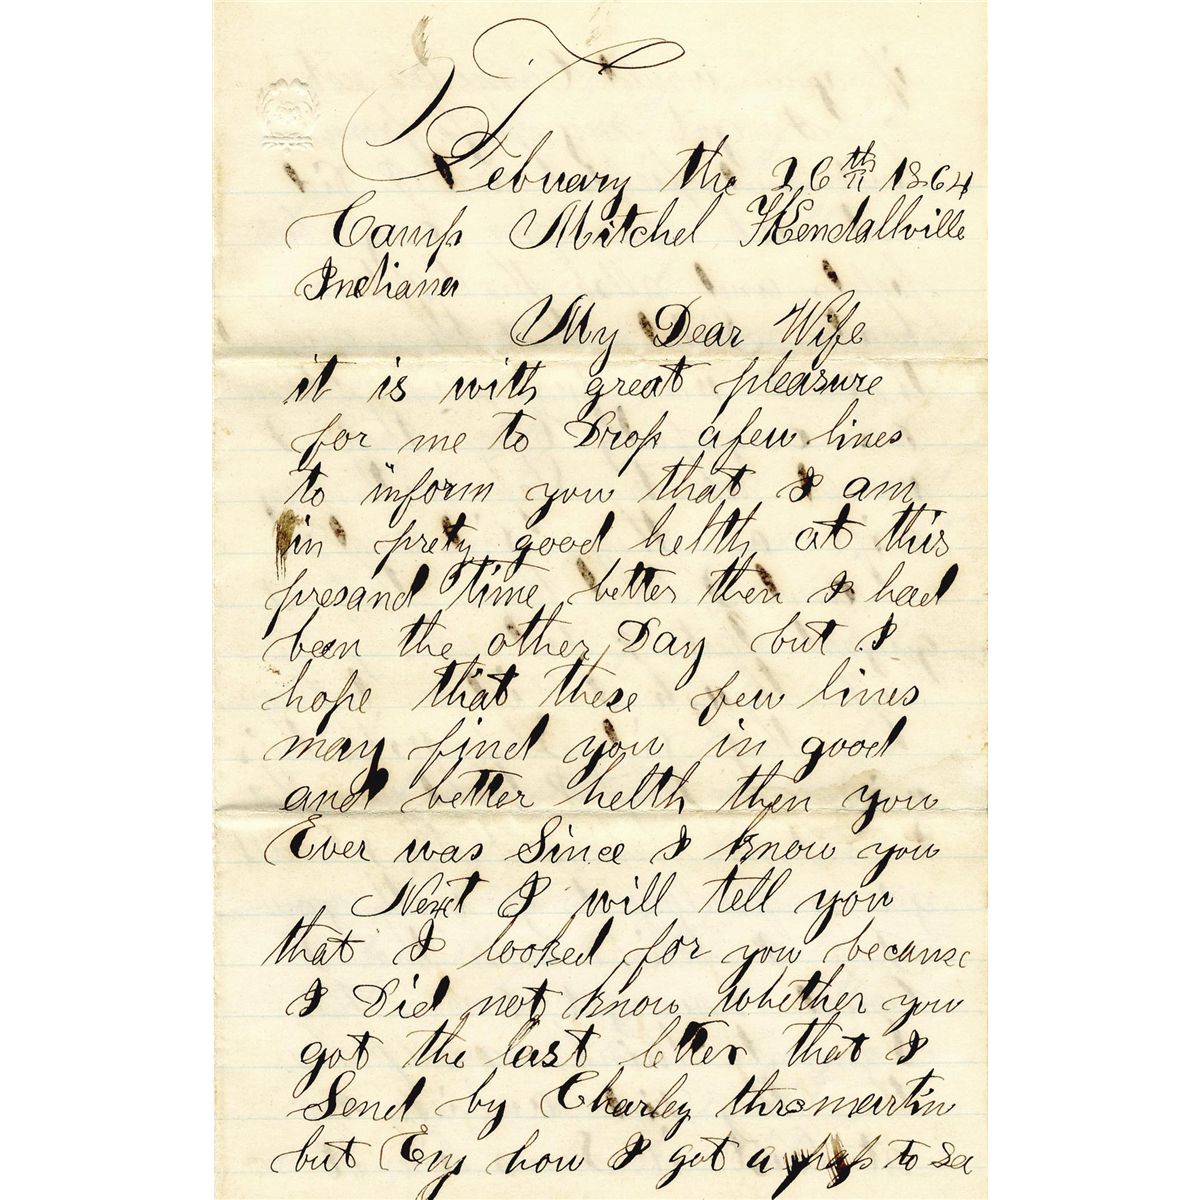 Febuary the 26th 1864
Camp Mitchel Kendallville
Indiana
My Dear Wife
it is with great pleasure
for me to Drop a few lines
to inform you that I am
in prety good helth at this
presand time better then I had
been the other Day but I
hope that these few lines
may find you in good
and better helth then you
Ever was Since I know you
Next I will tell you
that I looked for you because
I Did not know whether you
got the last letter that I
Send by Charley
but Eny how I got a pass to